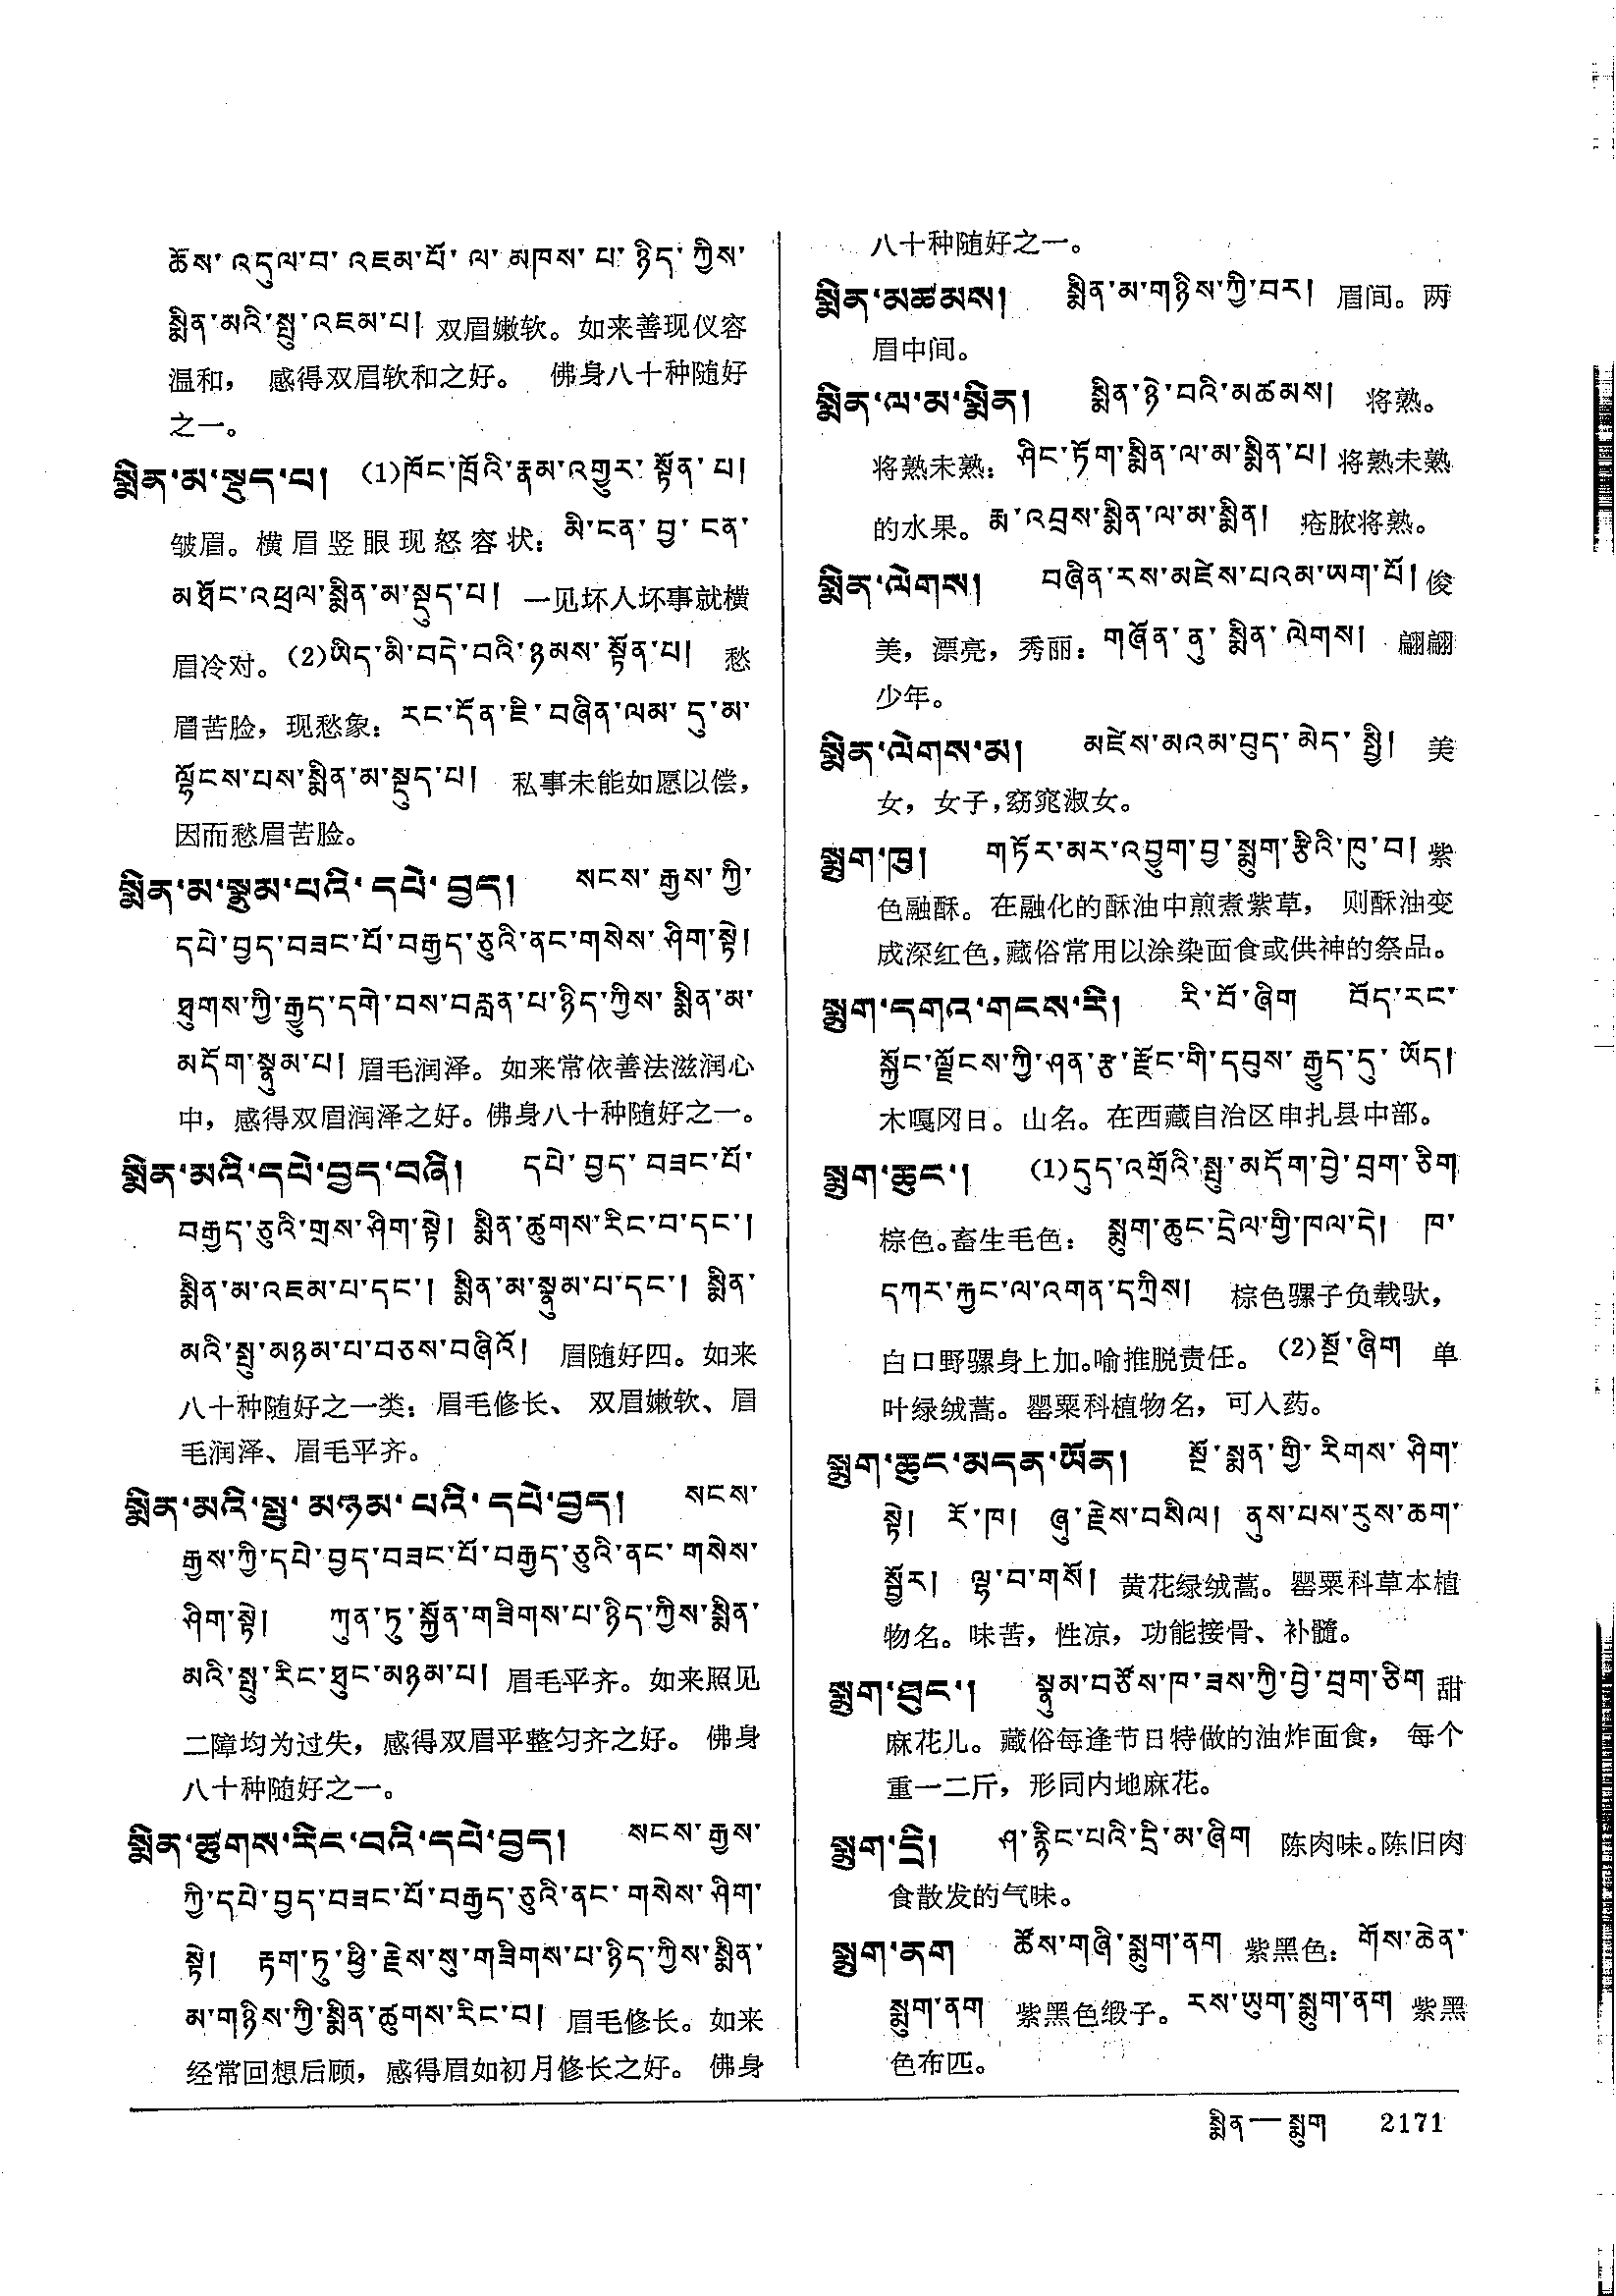 ཆོས་འདུལ་བ་འཇམ་པོ་ལ་མཁས་པ་ཉིད་ཀྱིས་
སྨིན་མའི་སྤུ་འཇམ་པ། 双眉嫩软。如来善现仪容
温和， 感得双眉软和之好。 佛身八十种随好
之一。
སྨིན་མ་སྡུད་པ། (1)ཁོང་ཁྲོའི་རྣམ་འགྱུར་སྟོན་པ།
皱眉。横眉竖眼现怒容状：མི་ངན་བྱ་ངན་
མཐོང་འཕྲལ་སྨིན་མ་སྡུད་པ། 一见坏人坏事就横
眉冷对。(2)ཡིད་མི་བདེ་བའི་ཉམས་སྟོན་པ། 愁
眉苦脸，现愁象：རང་དོན་ཇི་བཞིན་ལམ་དུ་མ་
ལྷོངས་པས་སྨིན་མ་སྡུད་པ། 私事未能如愿以偿，
因而愁眉苦脸。
སྨིན་མ་སྣུམ་པའི་དཔེ་བྱད། སངས་རྒྱས་ཀྱི་
དཔེ་བྱད་བཟང་པོ་བརྒྱད་ཅུའི་ནང་གསེས་ཤིག་སྟེ།
ཐུགས་ཀྱི་རྒྱུད་དགེ་བས་བརླན་པ་ཉིད་ཀྱིས་སྨིན་མ་
མདོག་སྣུམ་པ། 眉毛润泽。如来常依善法滋润心
中，感得双眉润泽之好。佛身八十种随好之一。
སྨིན་མའི་དཔེ་བྱད་བཞི། དཔེ་བྱད་བཟང་པོ་
བརྒྱད་ཅུའི་གྲས་ཤིག་སྟེ། སྨིན་ཚུགས་རིང་བ་དང་།
སྨིན་མ་འཇམ་པ་དང་། སྨིན་མ་སྣུམ་པ་དང་། སྨིན་
མའི་སྤུ་མཉམ་པ་བཅས་བཞིའོ། 眉随好四。如来
八十种随好之一类：眉毛修长、双眉嫩软、眉
毛润泽、眉毛平齐。
སྨིན་མའི་སྤུ་མཉམ་པའི་དཔེ་བྱད། སངས་
རྒྱས་ཀྱི་དཔེ་བྱད་བཟང་པོ་བརྒྱད་ཅུའི་ནང་གསེས་
ཤིག་སྟེ། ཀུན་ཏུ་སྐྱོན་གཟིགས་པ་ཉིད་ཀྱིས་སྨིན་
མའི་སྤུ་རིང་ཐུང་མཉམ་པ། 眉毛平齐。如来照见
二障均为过失，感得双眉平整匀齐之好。 佛身
八十种随好之一。
སྨིན་ཚུགས་རིང་བའི་དཔེ་བྱད། སངས་རྒྱས་
ཀྱི་དཔེ་བྱད་བཟང་པོ་བརྒྱད་ཅུའི་ནང་གསེས་ཤིག་
སྟེ། རྟག་ཏུ་ཕྱི་རྗེས་སུ་གཟིགས་པ་ཉིད་ཀྱིས་སྨིན་
མ་གཉིས་ཀྱི་སྨིན་ཚུགས་རིང་བ། 眉毛修长。如来
经常回想后顾，感得眉如初月修长之好。 佛身
八十种随好之一。
སྨིན་མཚམས། སྨིན་མ་གཉིས་ཀྱི་བར། 眉间。两
眉中间。
སྨིན་ལ་མ་སྨིན། སྨིན་ཉེ་བའི་མཚམས། 将熟。
将熟未熟：ཤིང་ཏོག་སྨིན་ལ་མ་སྨིན་པ། 将熟未熟
的水果。རྨ་འབྲས་སྨིན་ལ་མ་སྨིན། 疮脓将熟。
སྨིན་ལེགས། བཞིན་རས་མཛེས་པའམ་ཡག་པོ། 俊
美，漂亮，秀丽：གཞོན་ནུ་སྨིན་ལེགས། 翩翩
少年。
སྨིན་ལེགས་མ། མཛེས་མའམ་བུད་མེད་སྤྱི། 美
女，女子，窈窕淑女。
སྨུག་ཁུ། གཏོར་མར་འབྱུག་བྱ་སྨུག་རྩིའི་ཁུ་བ། 紫
色融酥。在融化的酥油中煎煮紫草， 则酥油变
成深红色，藏俗常用以涂染面食或供神的祭品。
སྨུག་དགའ་གངས་རི། རི་བོ་ཞིག བོད་རང་
སྐྱོང་ལྗོངས་ཀྱི་ཤན་རྩ་རྫོང་གི་དབུས་རྒྱུད་དུ་ཡོད།
木嘎冈日。山名。在西藏自治区申扎县中部。
སྨུག་ཆུང་། (1)དུད་འགྲོའི་སྤུ་མདོག་བྱེ་བྲག་ཅིག
棕色。畜生毛色： སྨུག་ཆུང་དྲེལ་གྱི་ཁལ་དེ། ཁ་
དཀར་རྐྱང་ལ་འགན་དཀྲིས། 棕色骡子负载驮，
白口野骡身上加。喻推脱责任。(2)སྔོ་ཞིག 单
叶绿绒蒿。罂粟科植物名，可入药。
སྨུག་ཆུང་མདན་ཡོན། སྔོ་སྨན་གྱི་རིགས་ཤིག་
སྟེ། རོ་ཁ། ཞུ་རྗེས་བསིལ། ནུས་པས་རུས་ཆག་
སྦྱོར། ལྷ་བ་གསོ། 黄花绿绒蒿。罂粟科草本植
物名。味苦，性凉，功能接骨、补髓。
སྨུག་ཐུང་། སྣུམ་བཙོས་ཁ་ཟས་ཀྱི་བྱེ་བྲག་ཅིག 甜
麻花儿。藏俗每逢节日特做的油炸面食， 每个
重一二斤，形同内地麻花。
སྨུག་དྲི། ཤ་རྙིང་པའི་དྲི་མ་ཞིག 陈肉味。陈旧肉
食散发的气味。
སྨུག་ནག ཚོས་གཞི་སྨུག་ནག 紫黑色：གོས་ཆེན་
སྨུག་ནག 紫黑色缎子。རས་ཡུག་སྨུག་ནག 紫黑
色布匹。
སྨིན—སྨུག 2171